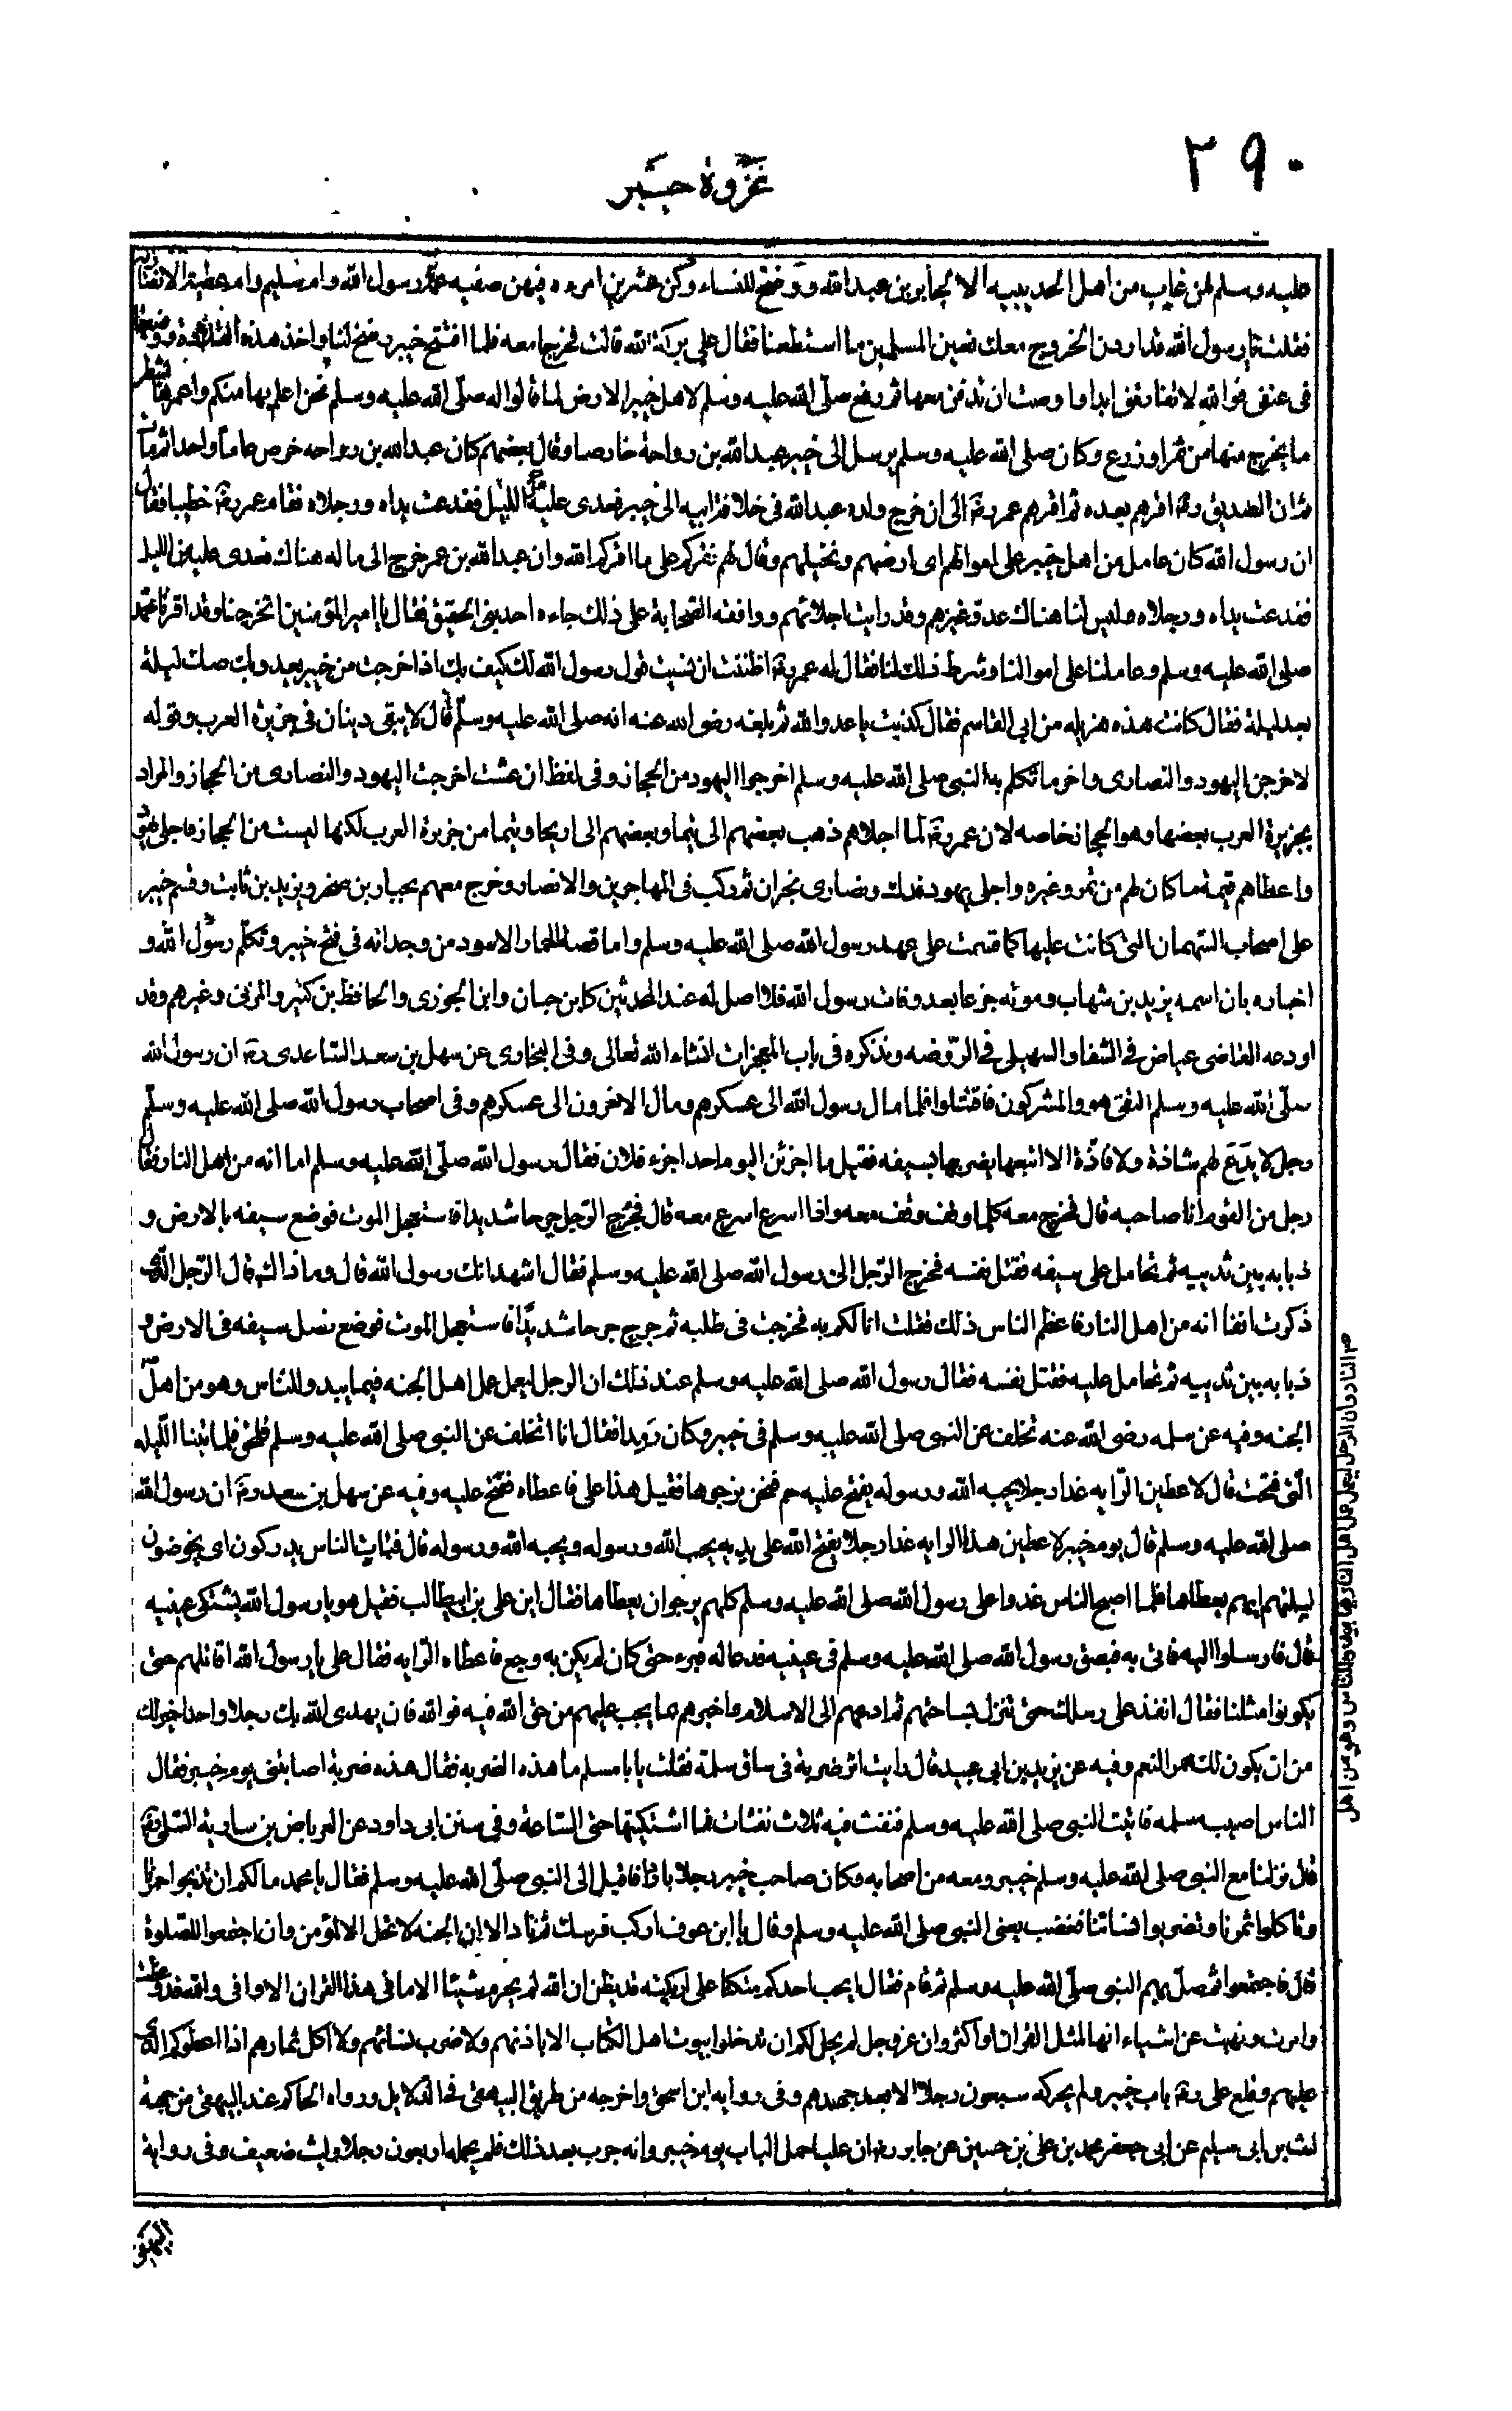 ٣٩٠
غزوة خيبر
عليه وسلم لمن غاب من اهل الحديبيه الا لجابر بن عبدالله ورضخ للنساء وكن عشرين امرءه فيهن صفيه عمة رسول الله وام سليم وام عطية الانصارية
فقلت يا رسول الله قد اردن الخروج معك نعين المسلمين ما استطعنا فقال على بركة الله قالت فخرجنا معه فلما افتتح خيبر رضخ لنا واخذ هذه القلادة ووضعها
فى عنقى فوالله لا تفارقنى ابدا واوصت ان تدفن معها ثم دفع صلى الله عليه وسلم لاهل خيبر الارض لما قالوا له صلى الله عليه وسلم نحن اعلم بها منكم واعمرها بشطر
ما يخرج منها من ثمر او زرع وكان صلى الله عليه وسلم يرسل الى خيبر عبدالله بن رواحة خارصا وقال بعضهم كان عبدالله بن رواحه خرص عاماً واحدا ثم مات
ثم ان الصديق رضه اقرهم بعده ثم اقرهم عمر رضه الى ان خرج ولده عبدالله فى خلافة ابيه الى خيبر فعدى عليه الليل ففدعت يداه ورجلاه فقام عمر رضه خطيبا فقال
ان رسول الله كان عامل من اهل خيبر على اموالهم اى ارضهم ونخيلهم وقال لهم نقركم على ما اقركم الله وان عبدالله بن عمر خرج الى ماله هناك فعدى عليه من الليل
ففدعت يداه ورجلاه وليس لنا هناك عدو غيرهم وقد رايت اجلائهم ووافقه الصحابة على ذلك جاءه احد بنى الحقيق فقال يا امير المؤمنين اتخرجنا وقد اقرنا محمد
صلى الله عليه وسلم وعاملنا على اموالنا وشرط ذلك لنا فقال له عمر رضه اظننت ان نسيت قول رسول الله لك كيف بك اذا اخرجت من خيبر يعدو بك قلوصك ليلة
بعد ليلة فقال كانت هذه هزيله من ابى القاسم فقال كذبت يا عدو الله ثم بلغه رضى الله عنه انه صلى الله عليه وسلم قال لا يبقى دينان فى جزيرة العرب وقوله
لاخرجن اليهود والنصارى واخر ما تكلم به النبى صلى الله عليه وسلم اخرجوا اليهود من الحجاز وفى لفظ ان عشت اخرجت اليهود والنصارى من الحجاز والمراد
بجزيرة العرب بعضها وهو الحجاز خاصه لان عمر رضه لما اجلاهم ذهب بعضهم الى تيما وبعضهم الى اريحا وتيما من جزيرة العرب لكنها ليست من الحجاز فاجلى
واعطاهم قيمة ما كان لهم من ثمر وغيره واجلى يهود فدك ونصارى نجران ثم ركب فى المهاجرين والانصار وخرج معهم بجبار بن صخر ويزيد بن ثابت وقسم خيبر
على اصحاب السهمان التى كانت عليها كما قسمت على عهد رسول الله صلى الله عليه وسلم واما قصة الحمار الاسود من وجدانه فى فتح خيبر وتكلم رسول الله و
اخباره بان اسمه يزيد بن شهاب وموته جزعا بعد وفات رسول الله فلا اصل له عند المحدثين كابن حبان وابن الجوزى والحافظ بن كثير والمزنى وغيرهم وقد
اودعه القاضى عياض فى الشفا والسهيلى فى الروضه ونذكره فى باب المعجزات انشاء الله تعالى وفى البخارى عن سهل بن سعد الساعدى رضه ان رسول الله
صلى الله عليه وسلم التقى هو والمشركون فاقتتلوا فلما مال رسول الله الى عسكرهم ومال الاخرون الى عسكرهم وفى اصحاب رسول الله صلى الله عليه وسلم
رجل لا يدع لهم شاذة ولا فاذة الا اتبعها يضربها بسيفه فقيل ما اجزئ اليوم احد اجزء فلان فقال رسول الله صلى الله عليه وسلم اما انه من اهل النار فقال
رجل من القوم انا صاحبه قال فخرج معه كلما وقف وقف معه واذا اسرع اسرع معه قال فجرح الرجل جرحا شديدا فاستعجل الموت فوضع سيفه بالارض و
ذبابه بين ثدييه ثم تحامل على سيفه فقتل نفسه فخرج الرجل الى رسول الله صلى الله عليه وسلم فقال اشهد انك رسول الله قال وما ذاك قال الرجل الذى
ذكرت انفا انه من اهل النار فاعظم الناس ذلك فقلت انا لكم به فخرجت فى طلبه ثم جرح جرحا شديدا فاستعجل الموت فوضع نصل سيفه فى الارض و
ذبابه بين ثدييه ثم تحامل عليه فقتل نفسه فقال رسول الله صلى الله عليه وسلم عند ذلك ان الرجل ليعمل عمل اهل الجنه فيما يبدو للناس وهو من اهل
الجنه وفيه عن سلمه رضى الله عنه تخلف عن النبى صلى الله عليه وسلم فى خيبر وكان رمدا فقال انا اتخلف عن النبى صلى الله عليه وسلم فلحق فلما بتنا الليله
التى فتحت قال لاعطين الرايه غدا رجلا يحبه الله ورسوله يفتح عليه فنحن نرجوها فقيل هذا على فاعطاه ففتح عليه وفيه عن سهل بن سعد رضه ان رسول الله
صلى الله عليه وسلم قال يوم خيبر لاعطين هذا الرايه غدا رجلا يفتح الله على يديه يحب الله ورسوله ويحبه الله ورسوله قال فبات الناس يدركون اى يخوضون
ليلتهم ايهم يعطاها فلما اصبح الناس غدوا على رسول الله صلى الله عليه وسلم كلهم يرجو ان يعطاها فقال اين على بن ابيطالب فقيل هو يا رسول الله يشتكى عينيه
قال فارسلوا اليه فاتى به فبصق رسول الله صلى الله عليه وسلم فى عينيه فدعا له فبرء حتى كان لم يكن به وجع فاعطاه الرايه فقال على يا رسول الله اقاتلهم حتى
يكونوا مثلنا فقال انفذ على رسلك حتى تنزل بساحتهم ثم ادعهم الى الاسلام واخبرهم بما يجب عليهم من حق الله فيه فوالله فان يهدى الله بك رجلا واحدا خير لك
من ان يكون لك حمر النعم وفيه عن يزيد بن ابى عبيد قال رايت اثر ضربة فى ساق سلمة فقلت يا با مسلم ما هذه الضربه فقال هذه ضربة اصابتنى يوم خيبر فقال
الناس اصيب سلمه فاتيت النبى صلى الله عليه وسلم فنفث فيه ثلاث نفثات فما اشتكيتها حتى الساعة وفى سنن ابى داود عن العرباض بن سارية السلمى رضه
قال نزلنا مع النبى صلى الله عليه وسلم خيبر ومعه من اصحابه وكان صاحب خيبر رجلا فاقبل الى النبى صلى الله عليه وسلم فقال يا محمد ما لكم ان تذبحوا حمرنا
وتاكلوا ثمرنا وتضربوا نسائنا فغضب يعنى النبى صلى الله عليه وسلم وقال يا ابن عوف اركب فرسك ثم ناد الا ان الجنه لا تحل الا لمؤمن وان اجتمعوا للصلوة
قال فاجتمعوا ثم صل بهم النبى صلى الله عليه وسلم ثم قام فقال ايحب احدكم متكئا على اريكته قد يظن ان الله لم يحرم شيئا الا ما فى هذا القران الا وانى والله قد وعظت
وامرت ونهيت عن اشياء انها لمثل القران او اكثر وان الله عز وجل لم يحل لكم ان تدخلوا بيوت اهل الكتاب الا باذنهم ولا ضرب نسائهم ولا اكل ثمارهم اذا اعطوكم الذى
عليهم وقلع على رضه باب خيبر ولم يحركه سبعون رجلا الا بعد جهدهم وفى روايه ابن اسحق واخرجه من طريق البيهقى فى الدلايل ورواه الحاكم عند البيهقى من جهة
ليث بن ابى سليم عن ابى جعفر محمد بن على بن حسين عن جابر رضه ان عليا حمل الباب يوم خيبر وانه جرب بعد ذلك فلم يحمله اربعون رجلا وليث ضعيف وفى رواية
النار وان الرجل ليعمل عمل اهل النار فيما يبدو للناس وهو من اهل
البيهقى